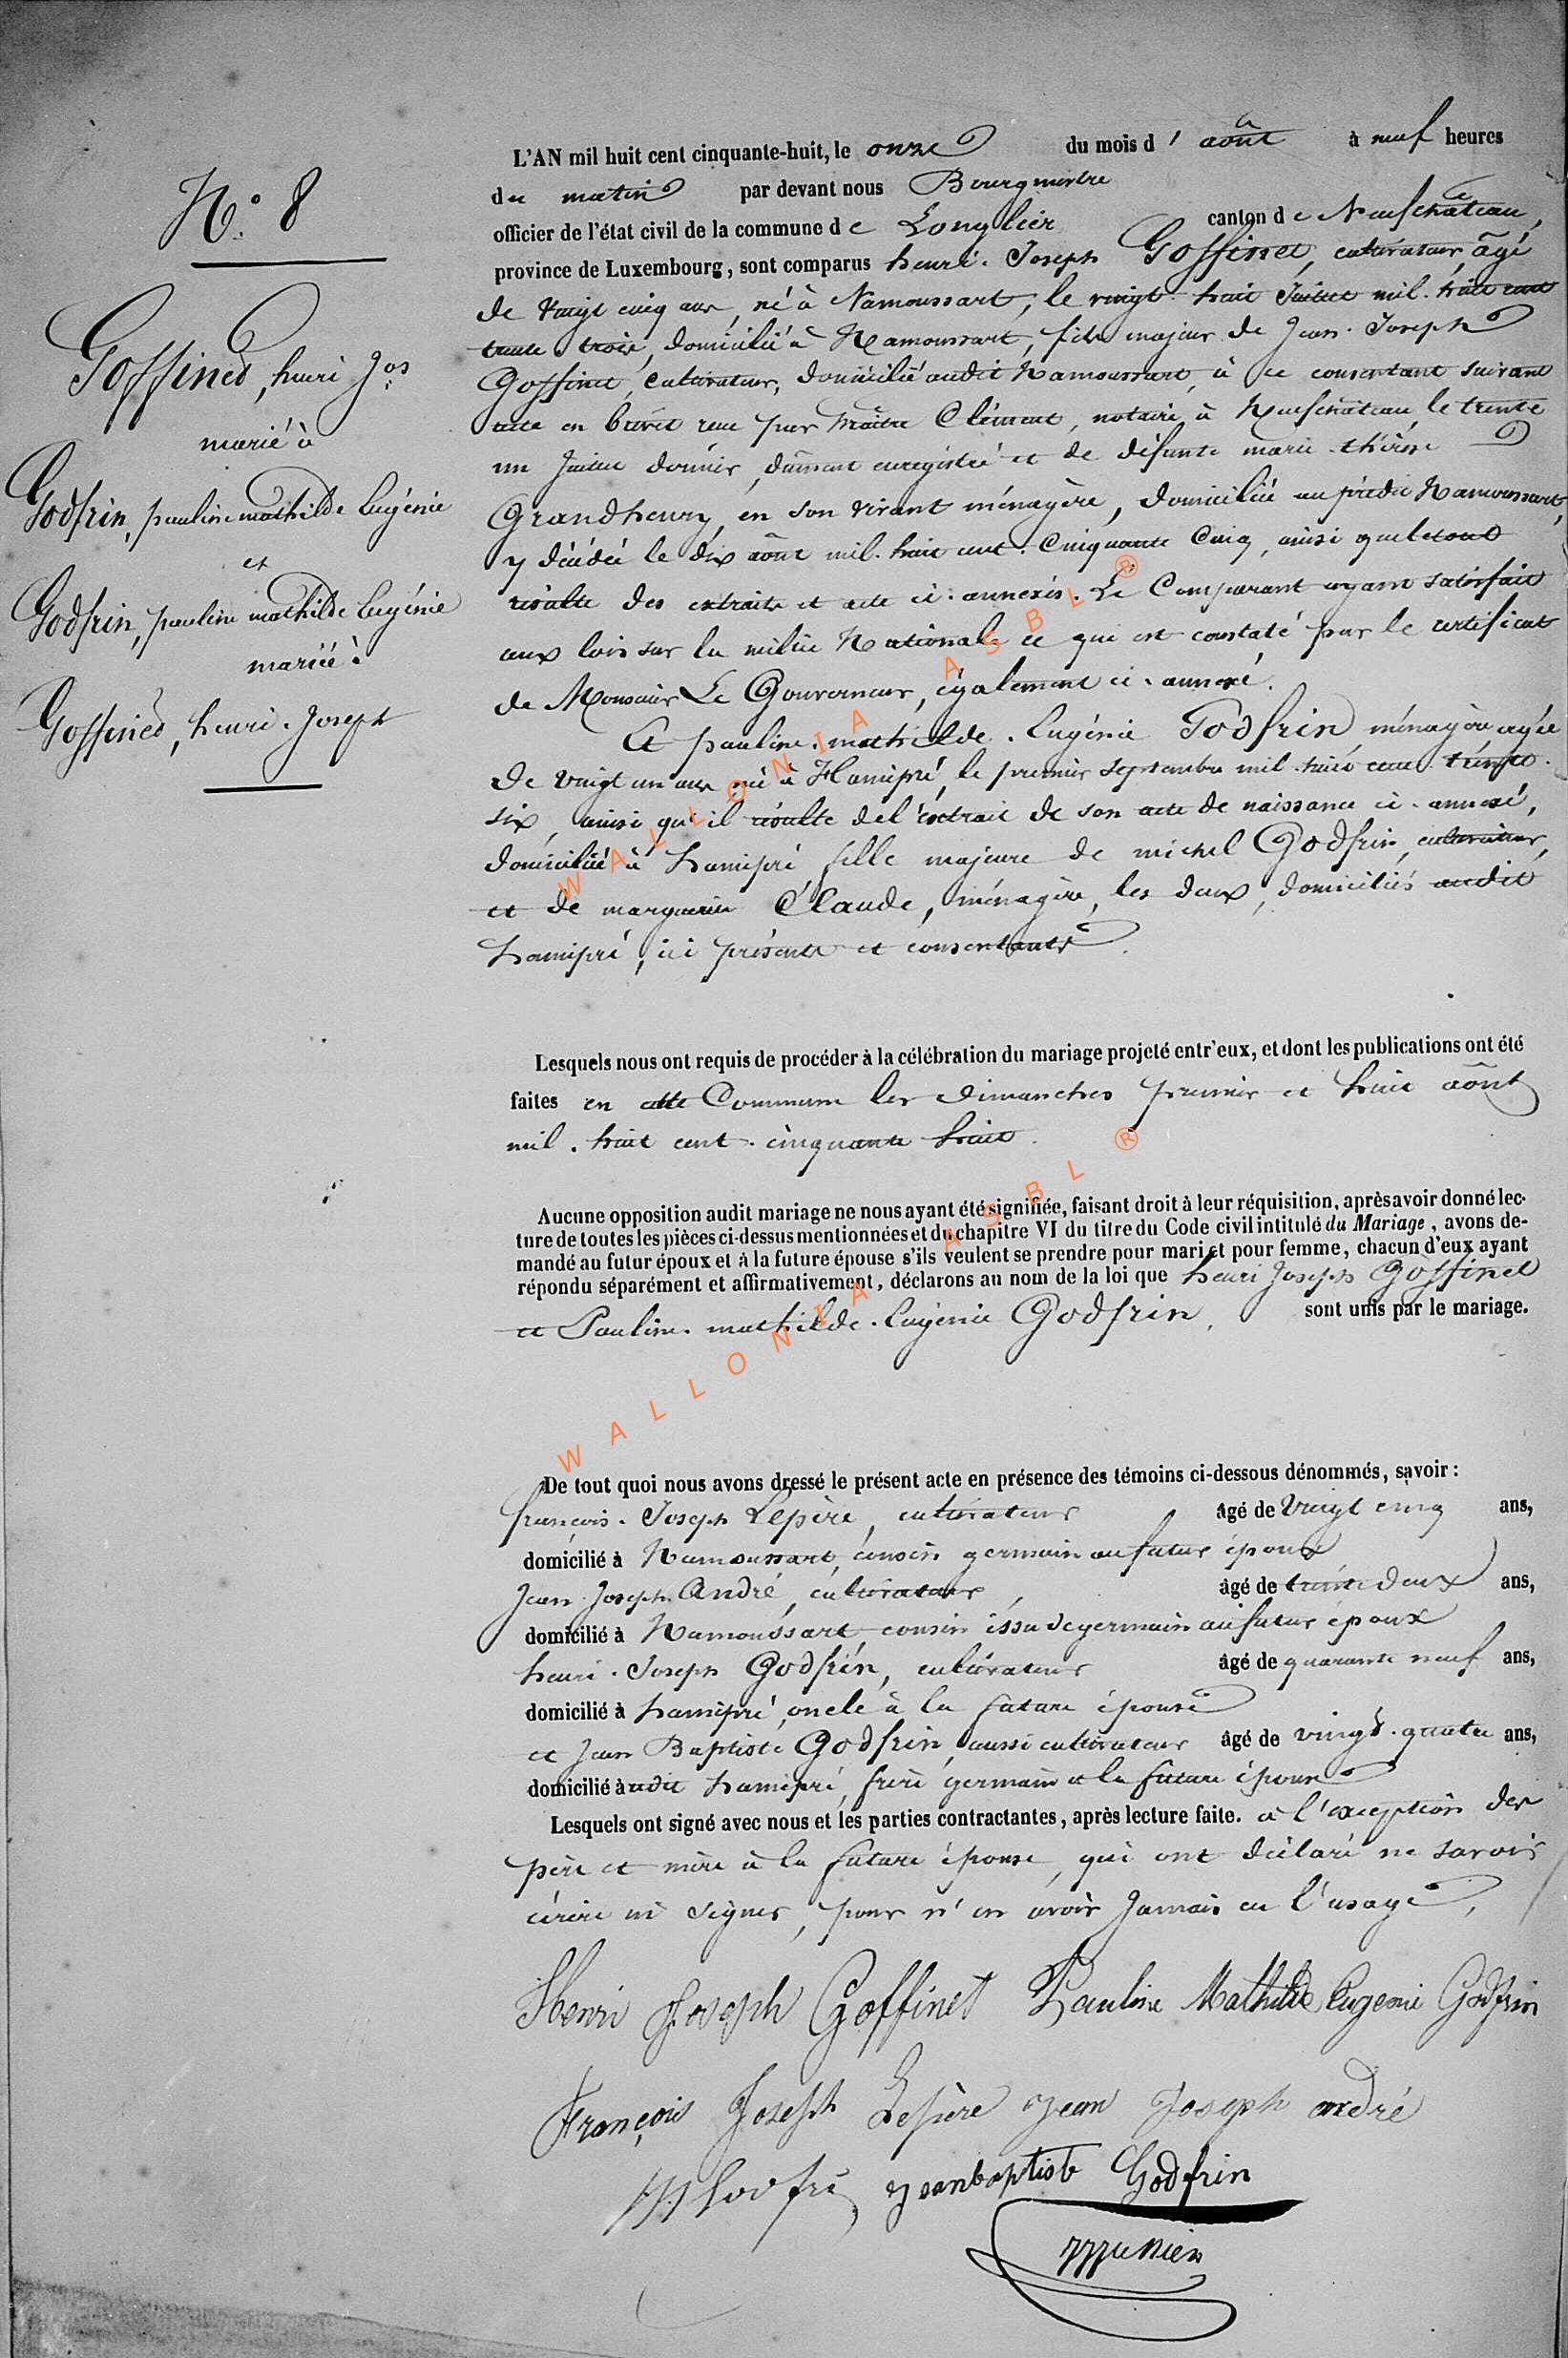 N.° 8
Goffinet, henri Jos
marié à
Godfrin, pauline mathilde Eugénie
et
Godfrin, pauline mathilde Eugénie
mariée à
Goffinet, henri. Joseph
L'AN mil huit cent cinquante-huit, le onze du mois d' août à neuf heures
du matin par devant nous Bourgmestre
officier de l'état civil de la commune de Longlier canton de Neufchâteau,
province de Luxembourg, sont comparus henri. Joseph Goffinet, cultivateur, âgé
de vingt cinq ans, né à Namoussart, le vingt. huit Juillet mil. huit cent
trente. trois, domicilié à Namoussart, fils majeur de Jean. Joseph
Goffinet, cultivateur, domicilié audit Namoussart, à ce consentant suivant
acte en brévet reçu par Maître Clément, notaire à Neufchâteau, le trente
un Juillet dernier, dûment enregistré et de défunte marie thérèse
Grandhenry, en son vivant ménagère, domiciliée au prédit Namoussart,
y décédée le dix août mil. huit cent. cinquante cinq, ainsi que le tout
résulte des extraits et acte ci. annexés. Le Comparant ayant satisfait
aux lois sur la milice Nationale ce qui est constaté par le certificat
de Monsieur Le Gouverneur, également ci. annexé.
Et pauline. mathilde. Eugénie Godfrin, ménagère agée
de vingt un ans né à Hamipré, le premier septembre mil. huit cent trente.
six, ainsi qu'il résulte de l'extrait de son acte de naissance ci. annexé,
domiciliée à hamipré fille majeure de michel Godfrin, cultivateur,
et de marguerite Claude, ménagère, les deux, domiciliés audit
hamipré, ici présents et consentants.
Lesquels nous ont requis de procéder à la célébration du mariage projeté entr'eux, et dont les publications ont été
faites en cette Commune les dimanches premier et huit août
mil. huit cent. cinquante huit.
Aucune opposition audit mariage ne nous ayant été signifiée, faisant droit à leur réquisition, après avoir donné lec-
ture de toutes les pièces ci-dessus mentionnées et du chapitre VI du titre du Code civil intitulé du Mariage, avons de-
mandé au futur époux et à la future épouse s'ils veulent se prendre pour mari et pour femme, chacun d'eux ayant
répondu séparément et affirmativement, déclarons au nom de la loi que henri Joseph Goffinet
et Pauline. mathilde. Eugénie Godfrin, sont unis par le mariage.
De tout quoi nous avons dressé le présent acte en présence des témoins ci-dessous dénommés, savoir :
françois. Joseph Lepère, cultivateur âgé de vingt cinq ans,
domicilié à Namoussart, cousin germain au futur époux
Jean Joseph André, cultivateur, âgé de trente deux ans,
domicilié à Namoussart cousin issu de germain au futur époux
henri. Joseph Godfrin, cultivateur âgé de quarante neuf ans,
domicilié à hamipré, oncle à la future épouse
et Jean Baptiste Godfrin, aussi cultivateur âgé de vingt. quatre ans,
domicilié audit hamipré, frère germain à la future épouse
Lesquels ont signé avec nous et les parties contractantes, après lecture faite. à l'exception des
père et mère à la future épouse, qui ont déclaré ne savoir
écrire ni signer, pour n'en avoir Jamais eu l'usage,
Henri Joseph Goffinet Pauline Mathilde Eugenie Godfrin
François Joseph Lepère Jean Joseph andré
Jean baptiste Godfrin
WALLONIA ASBL ®
WALLONIA ASBL ®